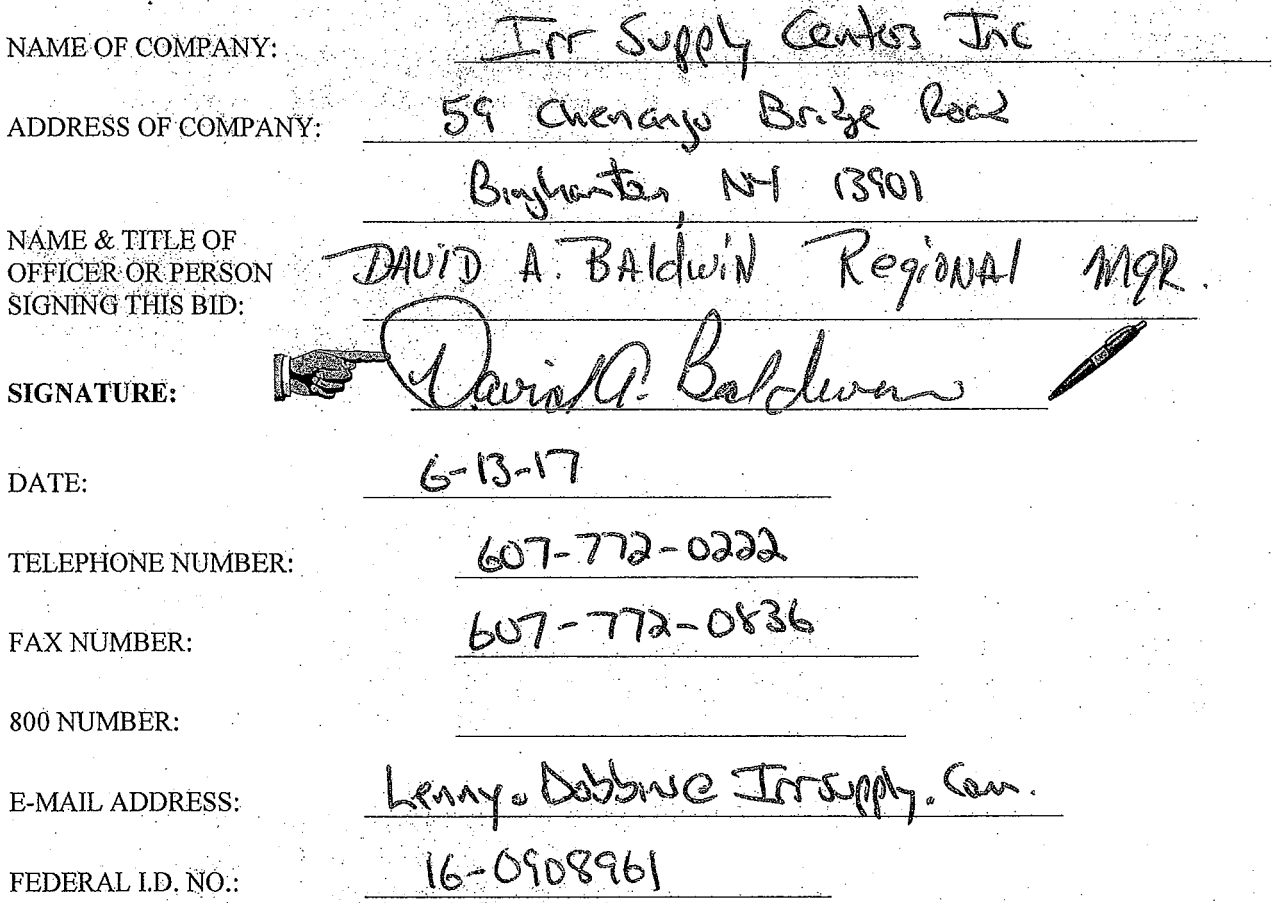 NAME OF COMPANY: Irr Supply Centers Inc
ADDRESS OF COMPANY: 59 Chenango Bridge Road
Binghamton, NY 13901
NAME & TITLE OF
OFFICER OR PERSON DAVID A. BAldwiN RegioNAl MgR.
SIGNING THIS BID:
SIGNATURE: David A. Baldwin
DATE: 6-13-17
TELEPHONE NUMBER: 607-772-0222
FAX NUMBER: 607-772-0836
800 NUMBER:
E-MAIL ADDRESS: Lenny.Dobbins@Irrsupply.Com.
FEDERAL I.D. NO.: 16-0908961